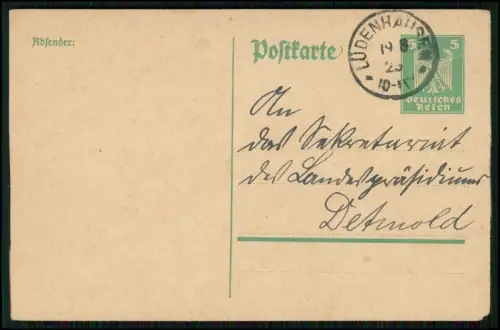 Absender:
Postkarte
LÜDENHAUSEN
19 8
25
10-11
5 5
Deutsches
Reich
An
das Sekretariat
des Landespräsidiums
Detmold